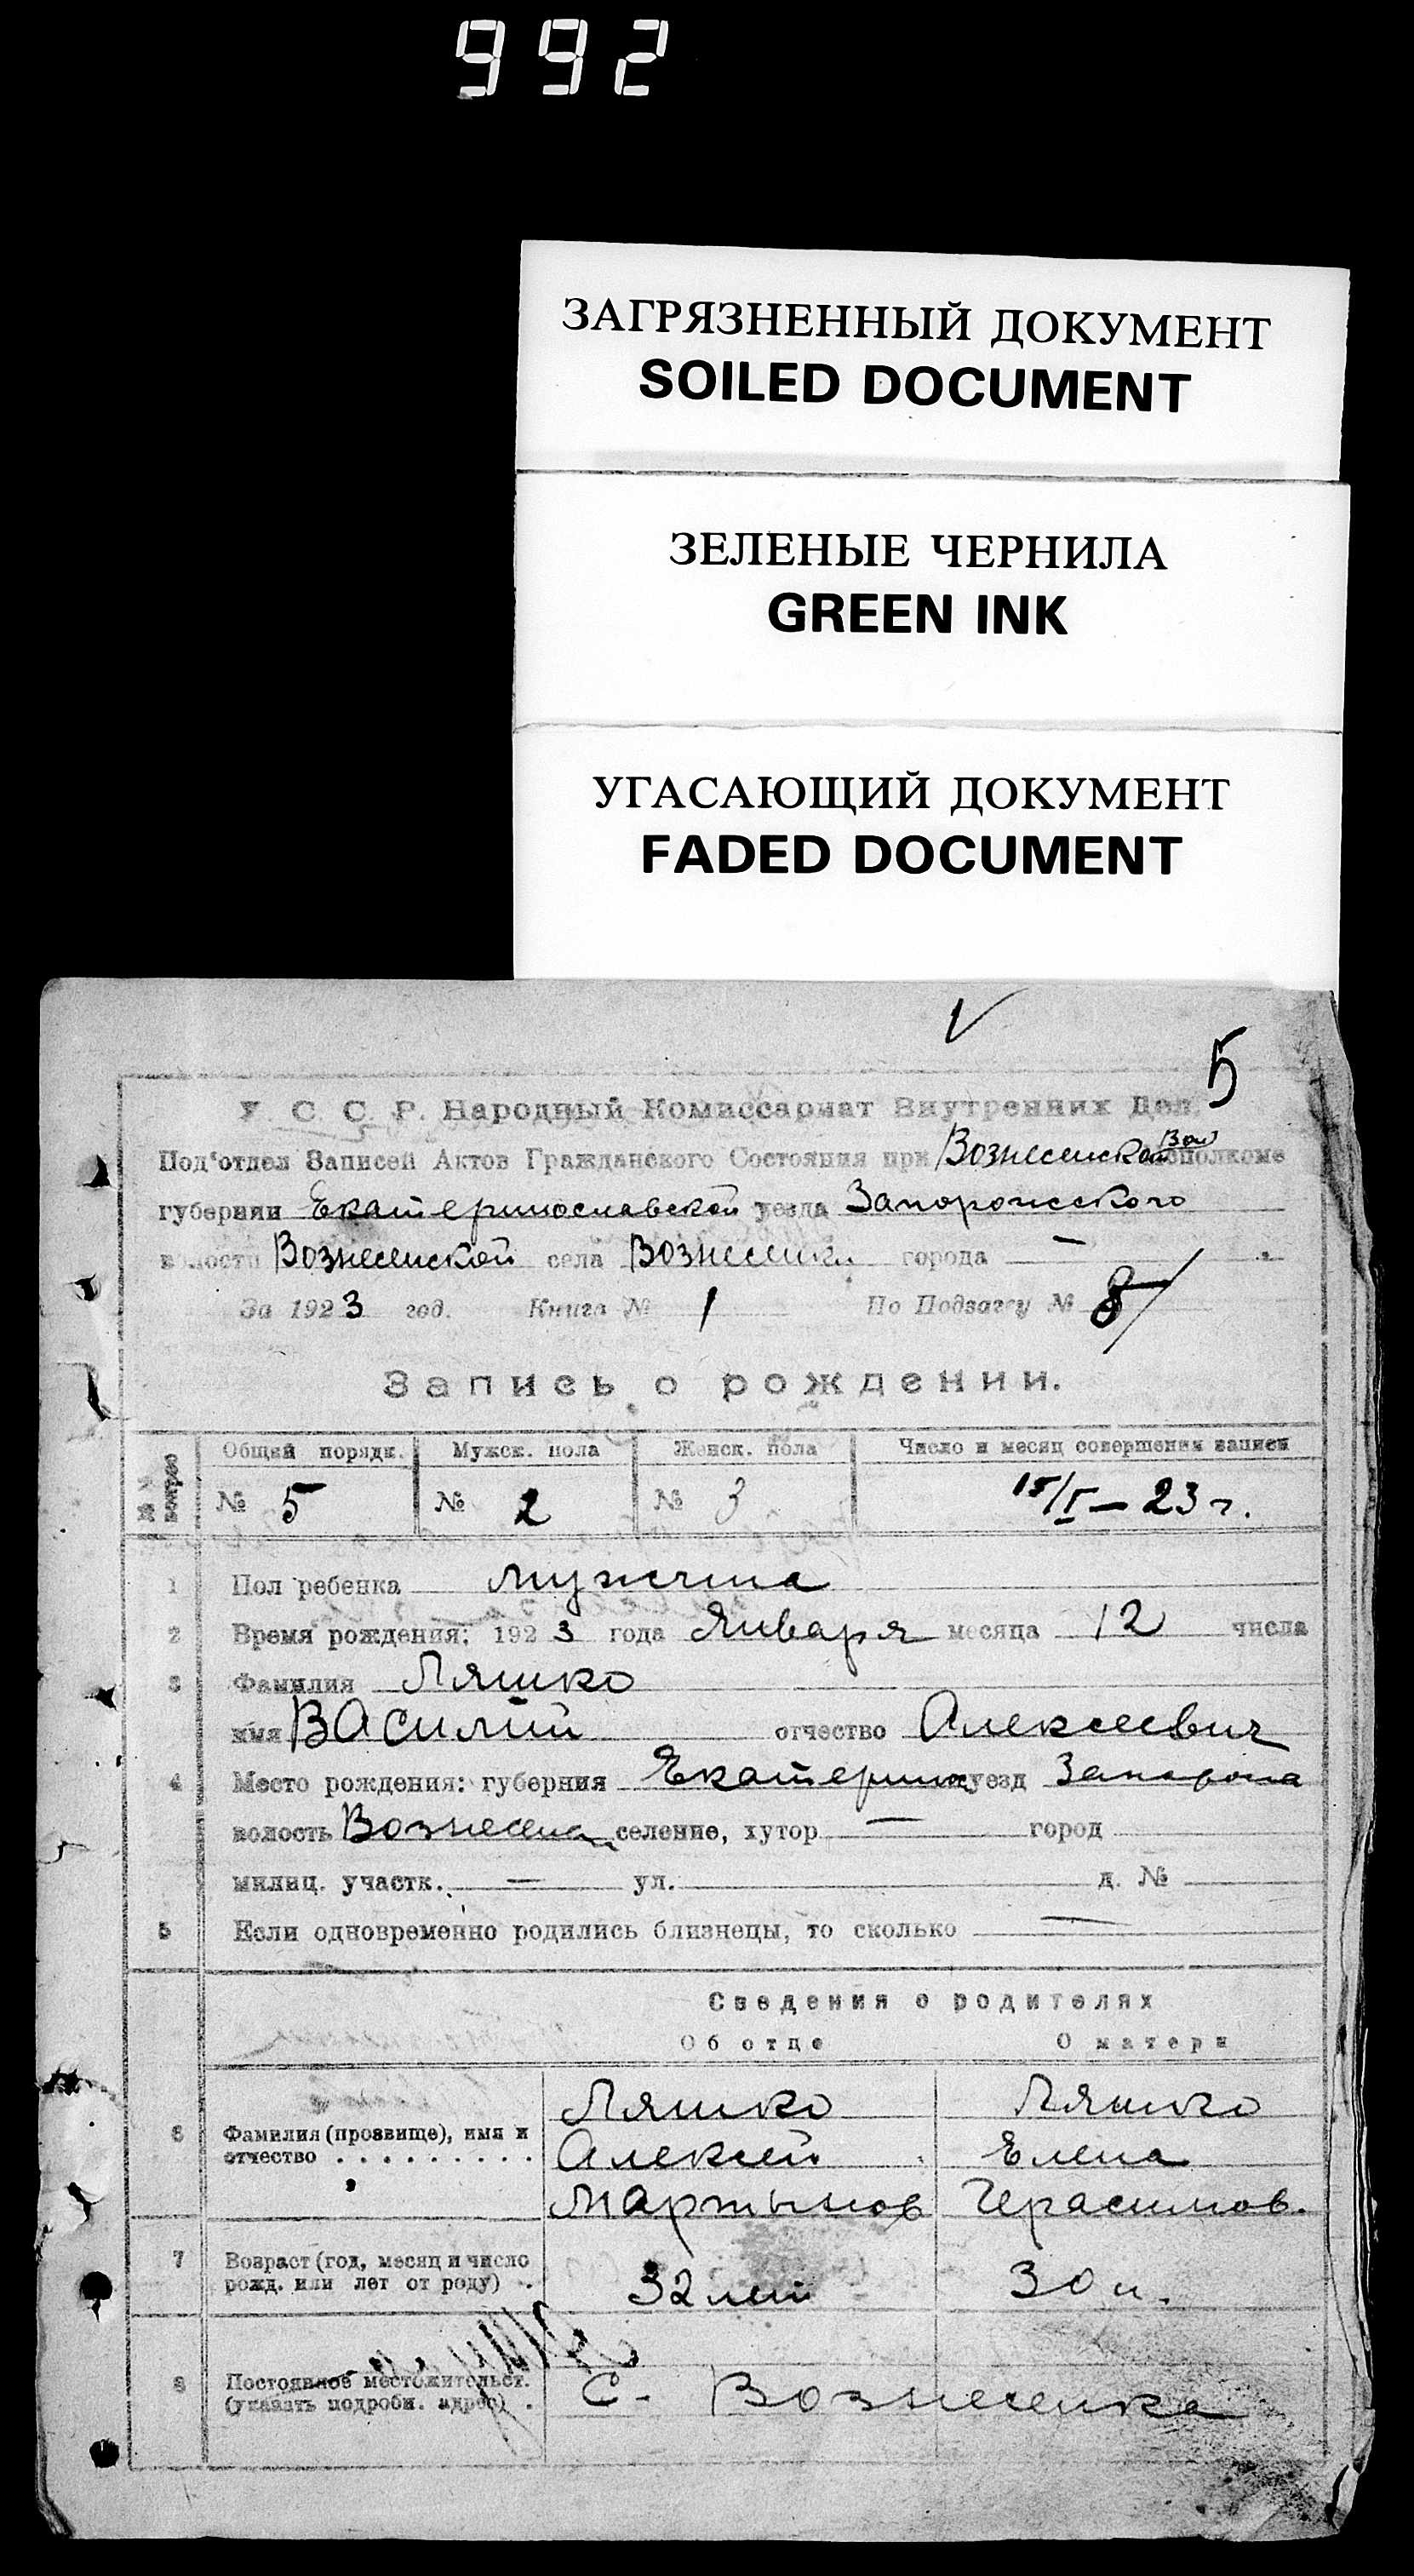 992
ЗАГРЯЗНЕННЫЙ ДОКУМЕНТ
SOILED DOCUMENT
ЗЕЛЕНЫЕ ЧЕРНИЛА
GREEN INK
УГАСАЮЩИЙ ДОКУМЕНТ
FADED DOCUMENT
5
У. С. С. Р. Народный Комиссариат Внутренних Дел.
Под'отдел Записей Актов Гражданского Состояния при Вознесенском Вол исполкоме
губернии Екатеринославской уезда Запорожского
волости Вознесенской села Вознесенки города —
За 1923 год. Книга № 1 По Подзагсу № 8
Запись о рождении.
№№ вопрос
Общий порядк. Мужск. пола Женск. пола Число и месяц совершения записи
№ 5 № 2 № 3 15/I – 23 г.
1 Пол ребенка мужчина
2 Время рождения: 1923 года Января месяца 12 числа
3 Фамилия Ляшко
имя Василий отчество Алексеевич
4 Место рождения: губерния Екатерин уезд
волость селение, хутор — город
милиц. участк. — ул. д. №
5 Если одновременно родились близнецы, то сколько —
Сведения о родителях
Об отце О матери
6 Фамилия (прозвище), имя и отчество . . . . . . . . .
Ляшко Ляшко
Алексей Елена
Мартынов Герасимов.
7 Возраст (год, месяц и число рожд. или лет от роду) .
32 лет 30 л.
8 Постоянное местожительст. (указать подробн. адрес) .
С. Вознесенка